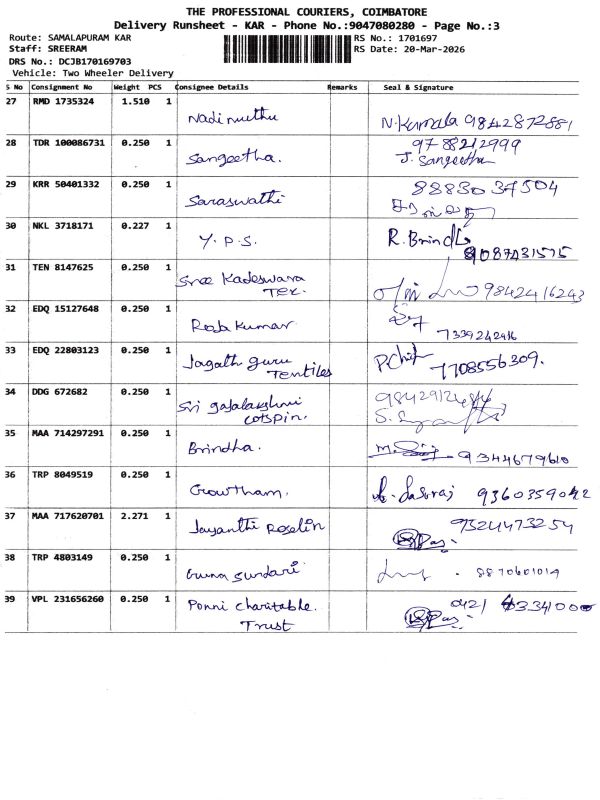 THE PROFESSIONAL COURIERS, COIMBATORE
Delivery Runsheet - KAR - Phone No.:9047080280 - Page No.:3
Route: SAMALAPURAM KAR
RS No.: 1701697
Staff: SREERAM
RS Date: 20-Mar-2026
DRS No.: DCJB170169703
Vehicle: Two Wheeler Delivery
S No Consignment No Weight PCS Consignee Details Remarks Seal & Signature
27 RMD 1735324 1.510 1 Nadimuthu N. Kamala 9842872881
28 TDR 100086731 0.250 1 Sangeetha. 9788212999 J. Sangeetha
29 KRR 50401332 0.250 1 Saraswathi 8883037504
30 NKL 3718171 0.227 1 Y.P.S. R. Brindha 9087431575
31 TEN 8147625 0.250 1 Sree Kadeswara Tex. 9842416243
32 EDQ 15127648 0.250 1 Raja kumar 7339242416
33 EDQ 22803123 0.250 1 Jagath guru Textiles 7708556309.
34 DDG 672682 0.250 1 Sri gajalakshmi cotspin.
35 MAA 714297291 0.250 1 Brindha. 9344679610
36 TRP 8049519 0.250 1 Gowtham. 9360359042
37 MAA 717620701 2.271 1 Jayanthi Roselin 9324473254
38 TRP 4803149 0.250 1 Guna Sundari 8870601019
39 VPL 231656260 0.250 1 Ponni charitable. Trust 0421